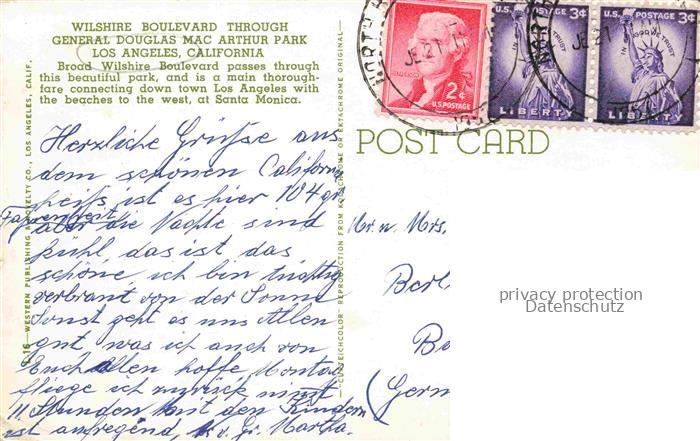 WILSHIRE BOULEVARD THROUGH
GENERAL DOUGLAS MAC ARTHUR PARK
LOS ANGELES, CALIFORNIA
Broad Wilshire Boulevard passes through
this beautiful park, and is a main thorough-
fare connecting down town Los Angeles with
the beaches to the west, at Santa Monica.
Herzliche Grüsse aus
dem schönen California
heiss ist es hier 104 gr
Farenheit
aber die Nächte sind
kühl, das ist das
schöne ich bin tüchtig
verbrant von der Sonne
Sonst geht es uns Allen
gut was ich auch von
Euch allen hoffe, Montag
fliege ich zurück
11 Stunden mit den Kindern
ist aufregend, Martha.
WESTERN PUBLISHING & NOVELTY CO., LOS ANGELES, CALIF.
"CURTEICHCOLOR" REPRODUCTION FROM KODACHROME OR EKTACHROME ORIGINAL
POST CARD
2¢
U.S. POSTAGE
U.S. POSTAGE 3¢
IN GOD WE TRUST
LIBERTY
U.S. POSTAGE 3¢
IN GOD WE TRUST
LIBERTY
NORTH H
JE 21
Mr. u. Mrs.
Berl
Be
(Germ
privacy protection
Datenschutz